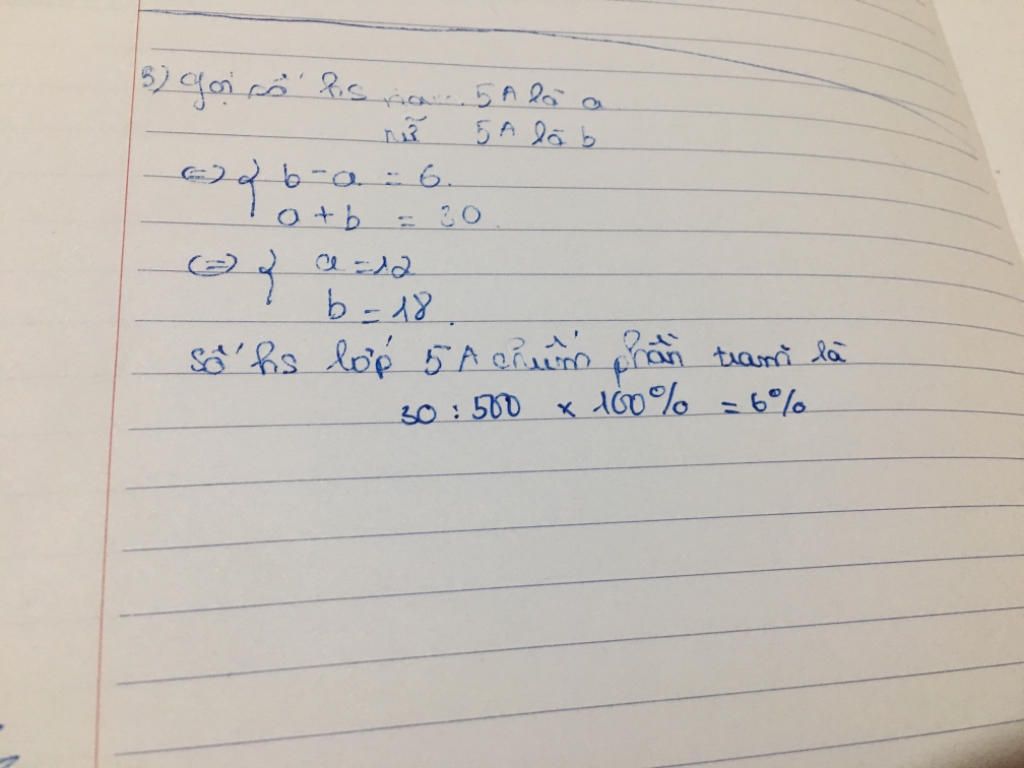 5) Gọi số hs na... 5A là a
nữ 5A là b
<=> { b - a = 6.
a + b = 30.
<=> { a = 12
b = 18.
Số hs lớp 5A chiếm phần trăm là
30 : 500 x 100% = 6%